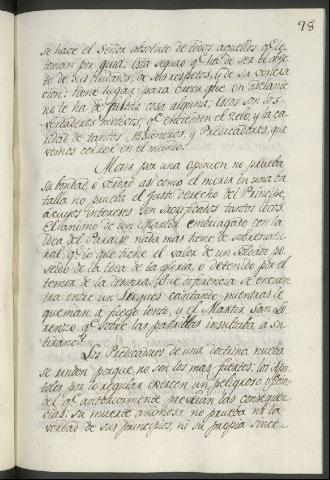 78
se hace el Señor absoluto de todos aquellos q.e le
toman por guia; Está seguro q.e ha de ser el obje-
to de sus cuidados, de sus respetos, y de su venera-
cion: tiene lugar para creer que en adelante
no le ha de faltar cosa alguna; Estos son los
verdaderos motivos, q.e encienden el zelo, y la ca-
lidad de tantos Misioneros, y Predicadores, que
vemos correr en el mundo.
Morir por una opinion no prueba
su bondad, o verdad asi como el morir en una ba-
talla no prueba el justo derecho del Principe,
a cuyos intereses son sacrificados tantos locos.
El animo de un Martir embriagado con la
idea del Paraiso nada mas tiene de sobrenatu-
ral, q.e lo que tiene el valor de un Soldado po-
seido de la idea de la gloria, o detenido por el
temor de la Que diferencia se encuen-
tra entre un cantando mientras le
queman a fuego lento, y el Martir San Lo-
renzo q.e sobre las parrillas insultaba a su
tirano?
Los Predicadores de una doctrina nueva
se rinden porque no son los mas fuertes: los Apos-
toles por lo regular exercen un peligroso oficio
del q.e anteriormente preveian las consequen-
cias: su muerte animosa no prueba ni la
verdad de sus principios, ni su propia since-